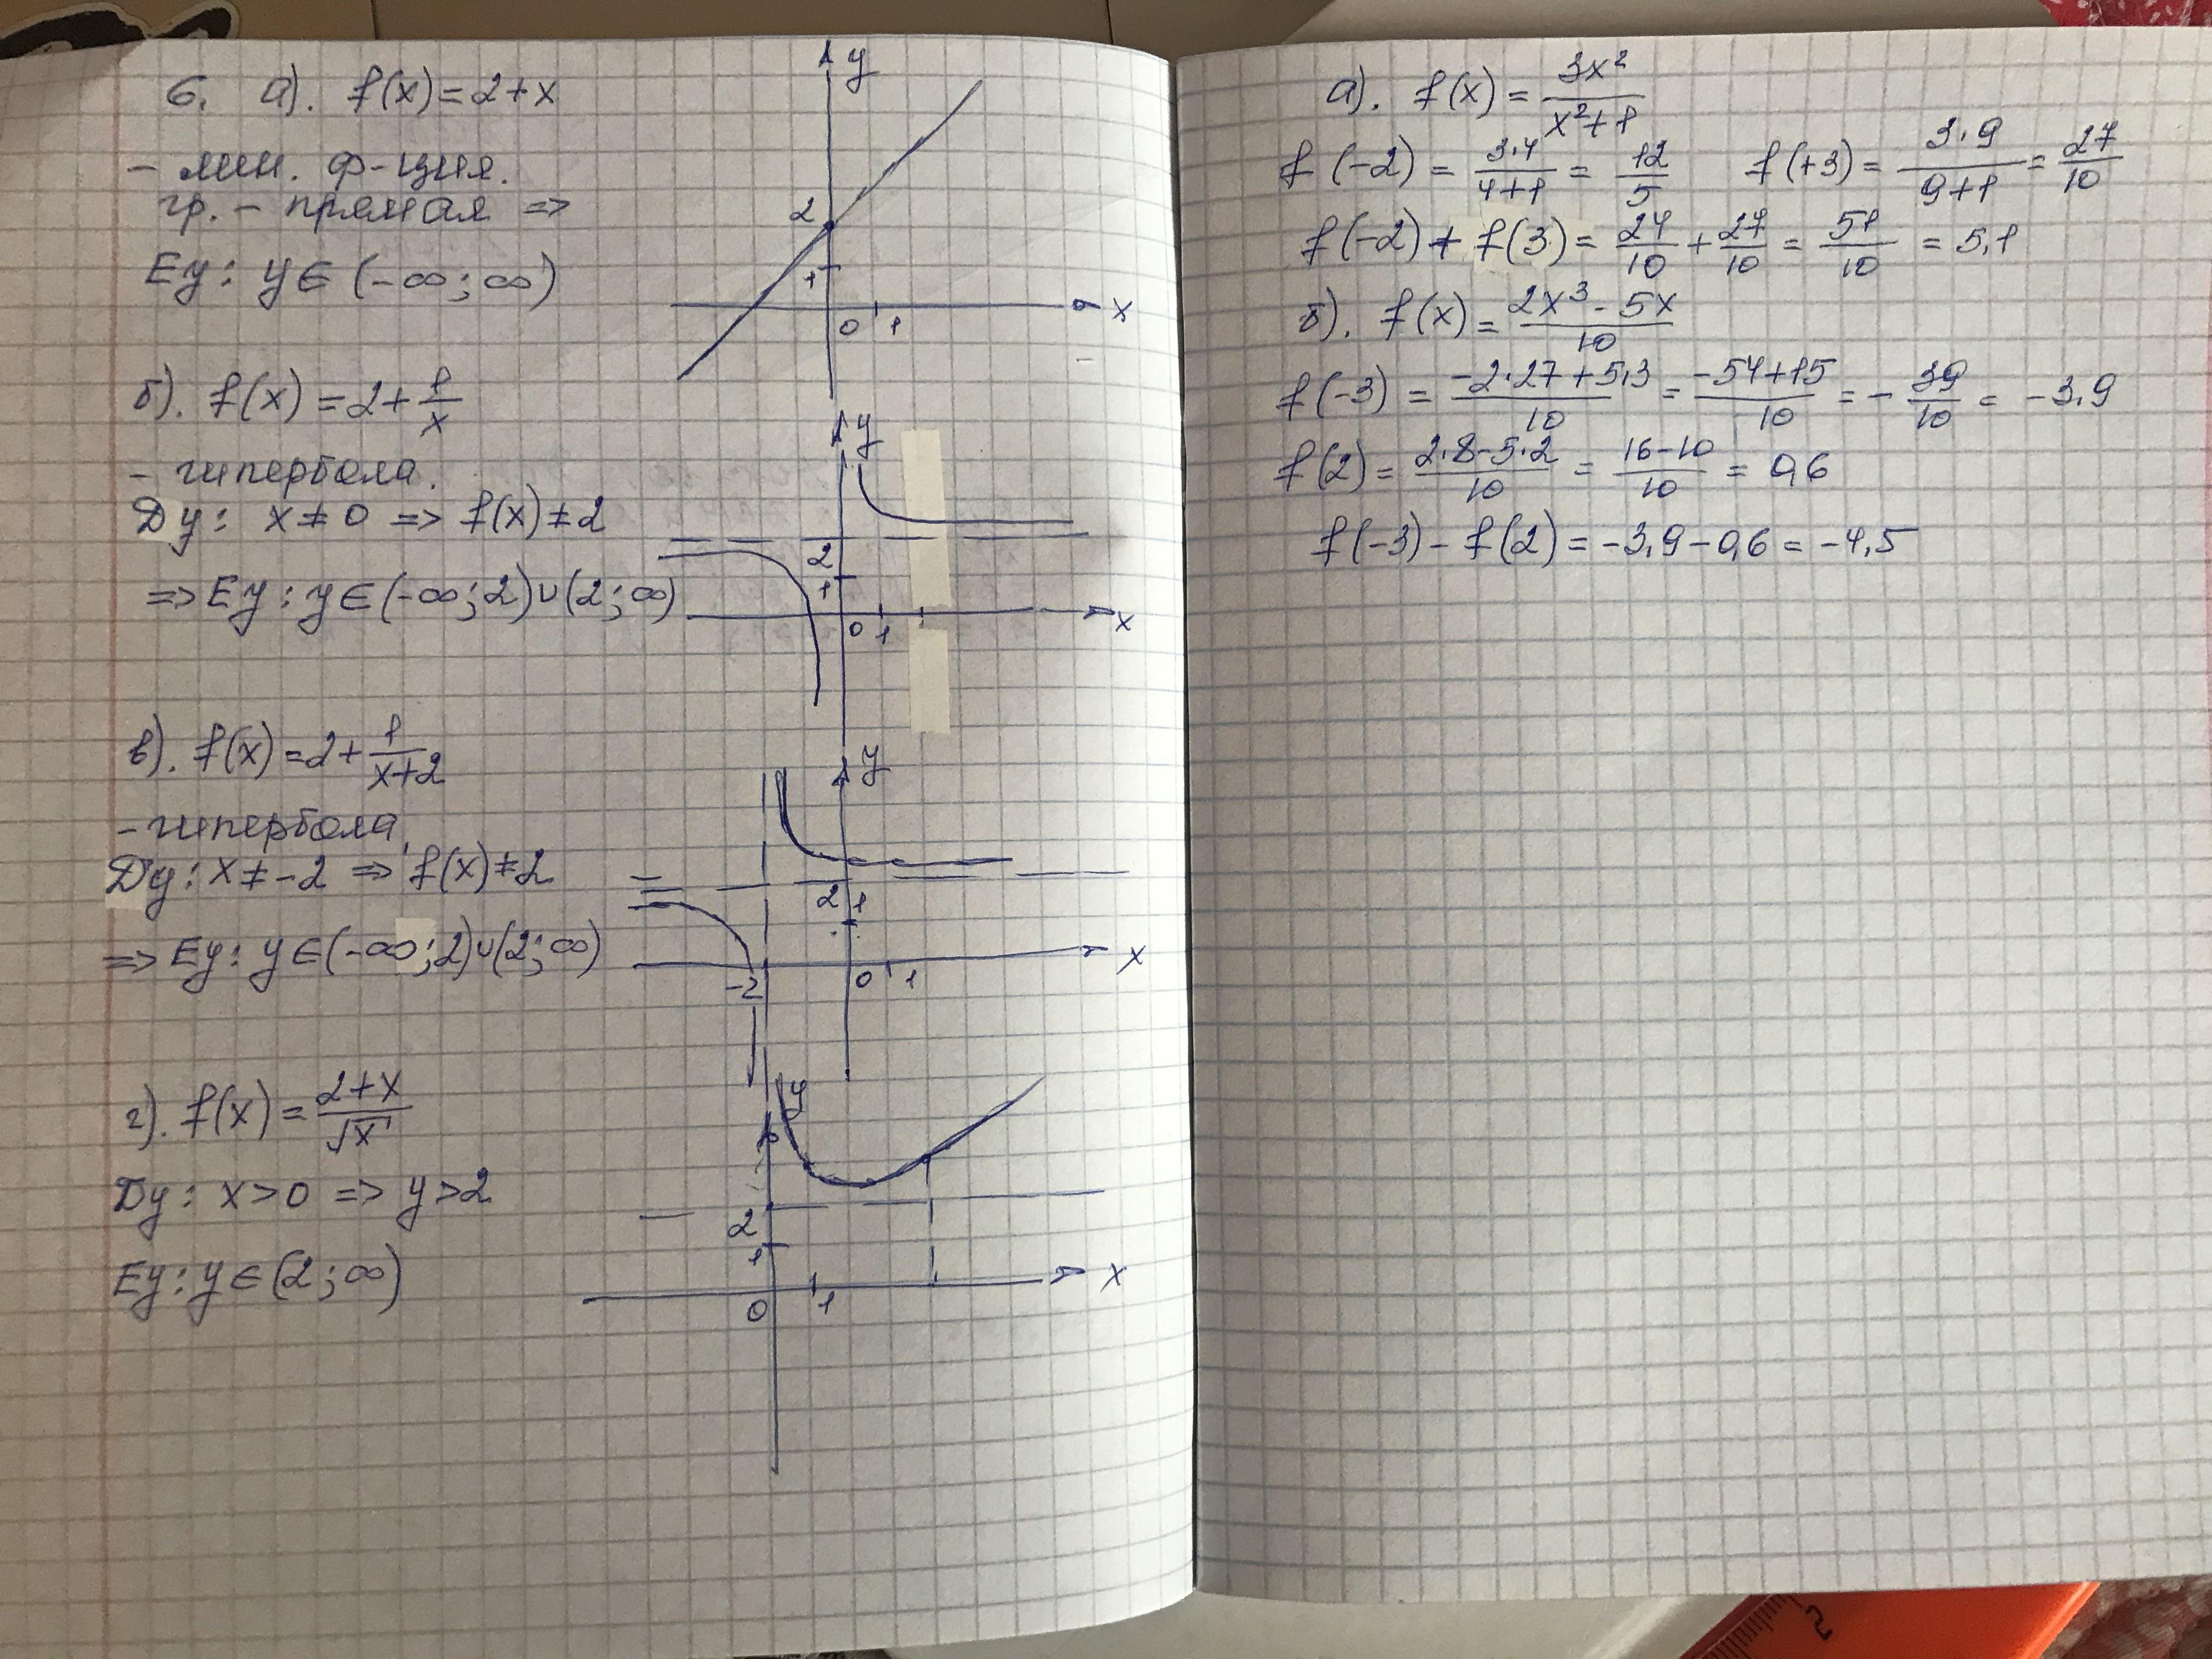 6. а). f(x) = 2+x
- лин. ф-ция.
гр. - прямая =>
Еу: у ∈ (-∞; ∞)
y
2
1
0 1
x
б). f(x) = 2 + 1/x
- гипербола.
Ду: x ≠ 0 => f(x) ≠ 2
=> Еу: у ∈ (-∞; 2) ∪ (2; ∞)
y
2
1
0 1
x
в). f(x) = 2 + 1/(x+2)
- гипербола
Ду: x ≠ -2 => f(x) ≠ 2
=> Еу: у ∈ (-∞; 2) ∪ (2; ∞)
y
2 1
-2 0 1
x
г). f(x) = (2+x)/√x
Ду: x > 0 => y > 2
Еу: у ∈ (2; ∞)
y
2
1
0 1
x
а). f(x) = 3x²/(x²+1)
f(-2) = 3·4/(4+1) = 12/5 f(+3) = 3·9/(9+1) = 27/10
f(-2) + f(3) = 24/10 + 27/10 = 51/10 = 5,1
б). f(x) = (2x³ - 5x)/10
f(-3) = (-2·27+5·3)/10 = (-54+15)/10 = -39/10 = -3,9
f(2) = (2·8-5·2)/10 = (16-10)/10 = 0,6
f(-3) - f(2) = -3,9 - 0,6 = -4,5
2